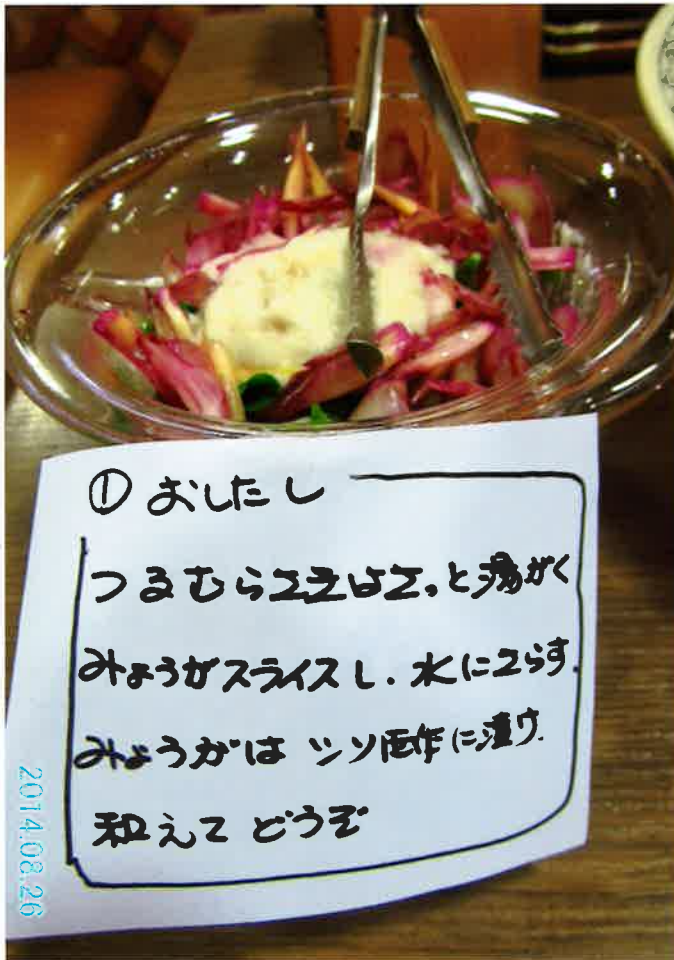 ① おしたし
つるむらさきはさっと湯がく
みょうがスライスし、水にさらす。
みょうがは シソ酢に漬け
和えて どうぞ
2014.08.26